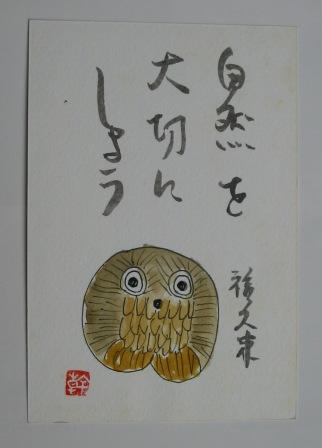 自然を
大切に
しよう
福久来